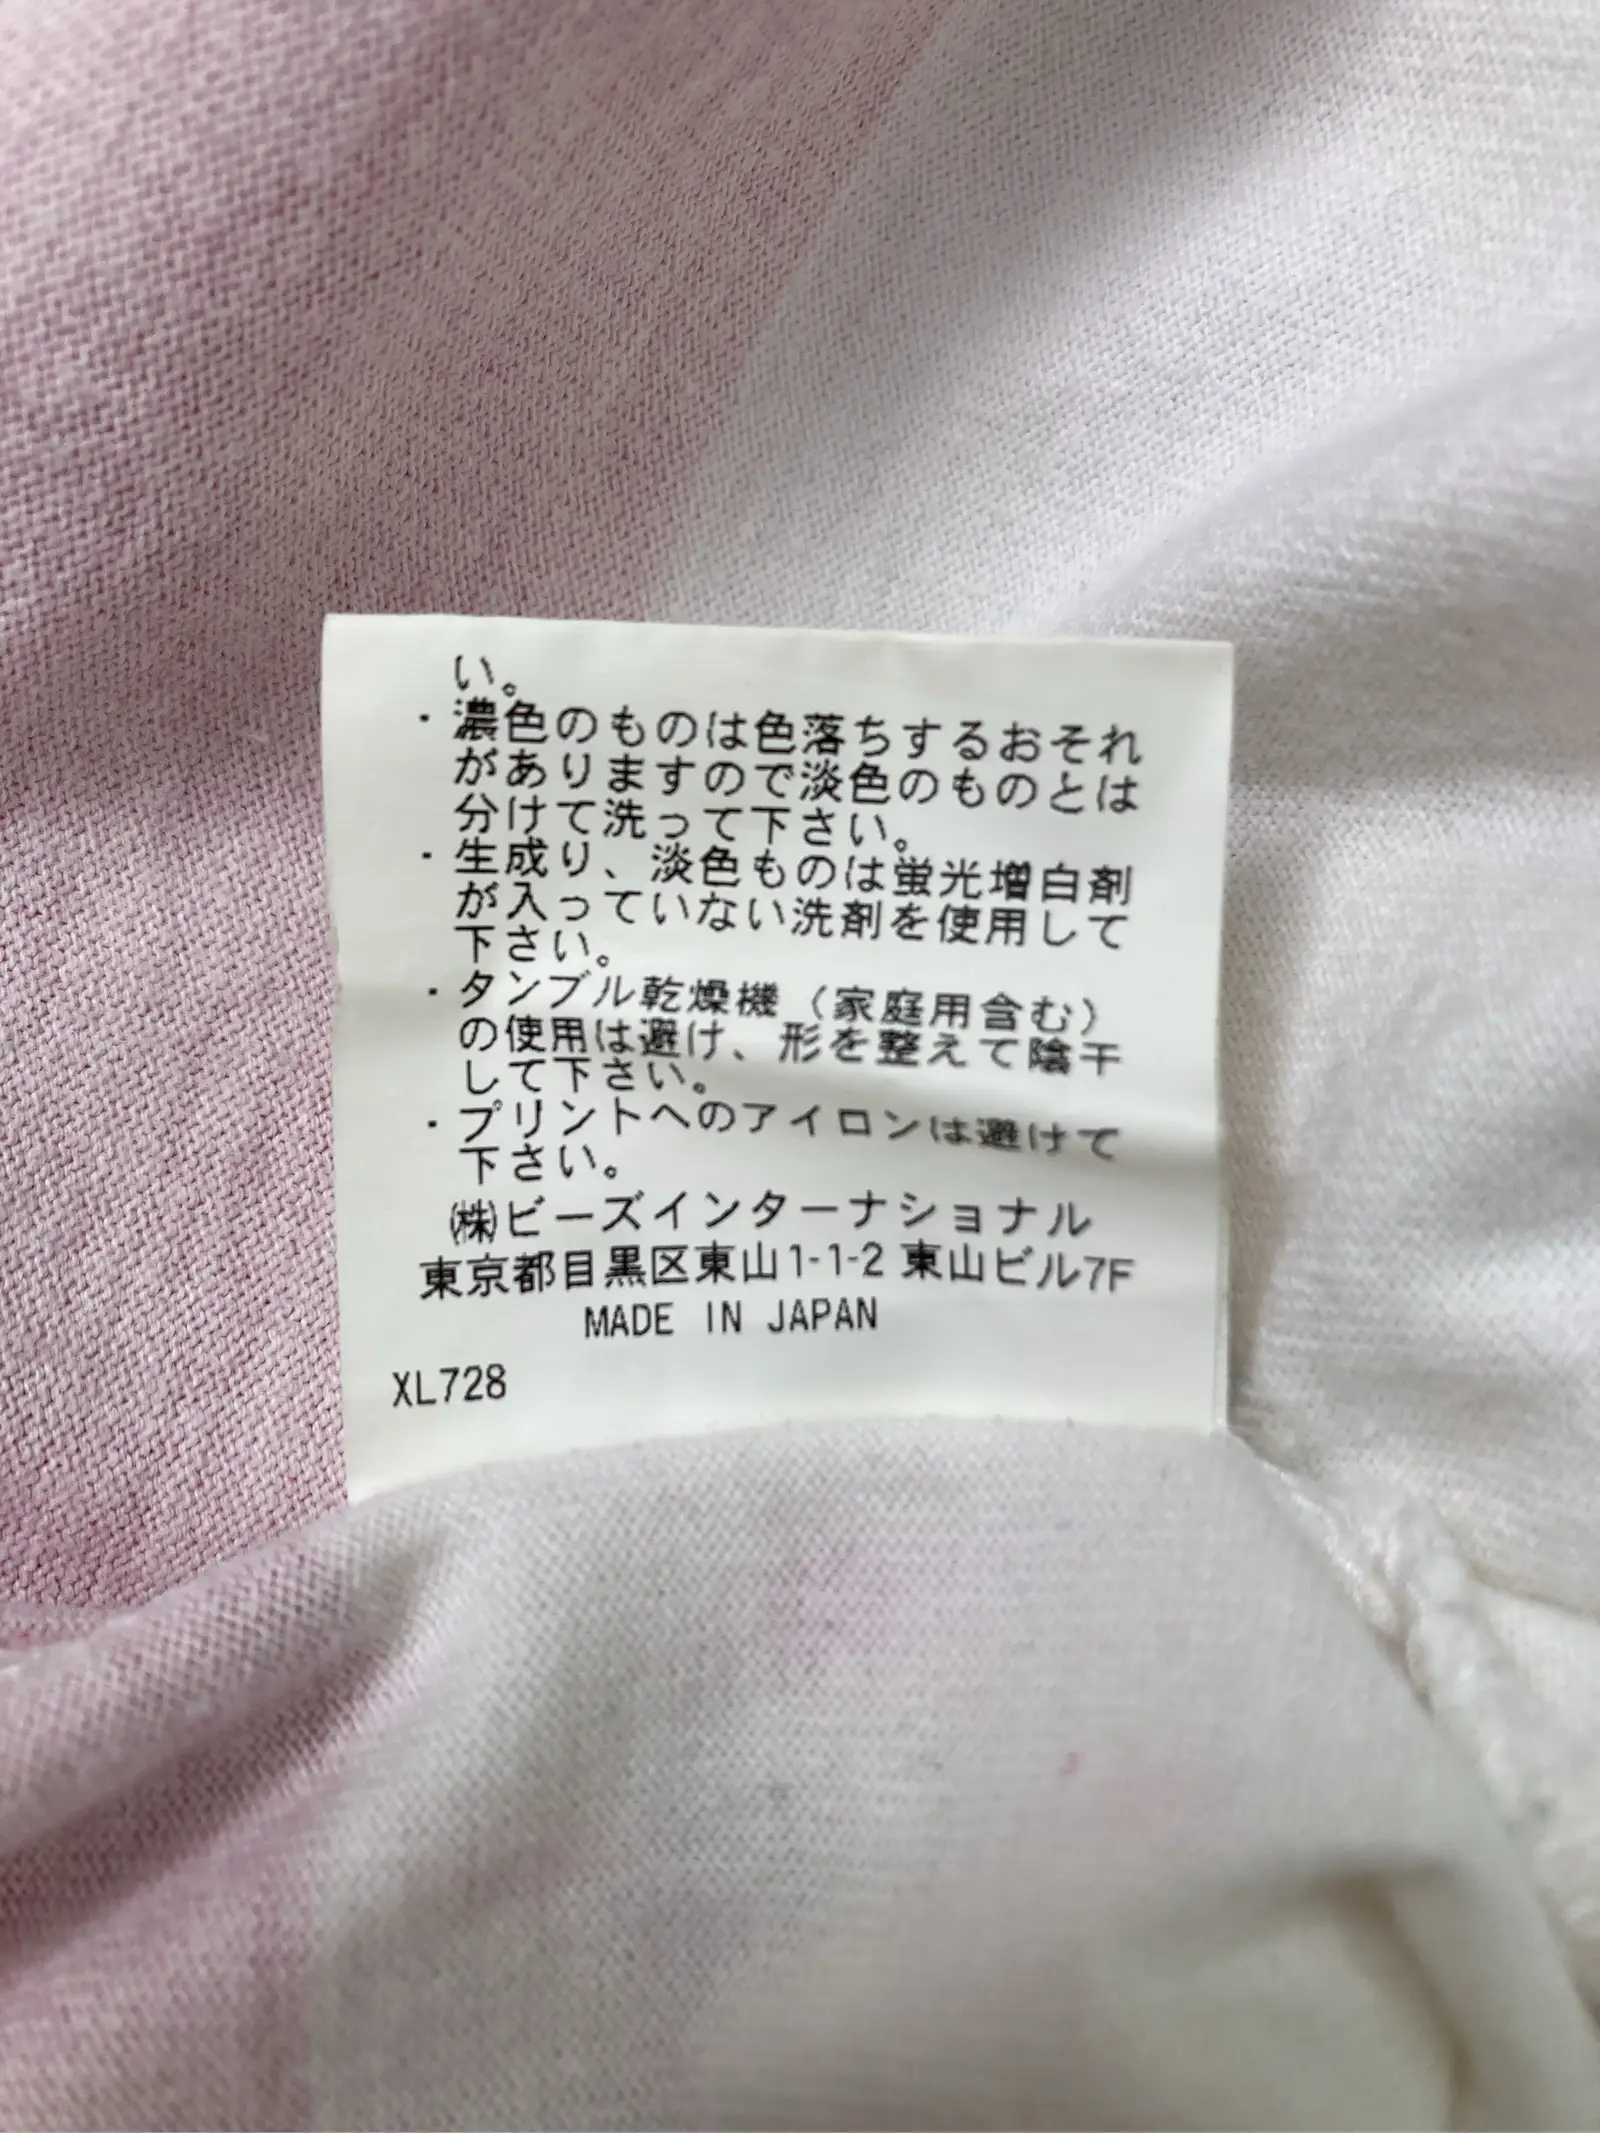 い。
・濃色のものは色落ちするおそれ
がありますので淡色のものとは
分けて洗って下さい。
・生成り、淡色ものは蛍光増白剤
が入っていない洗剤を使用して
下さい。
・タンブル乾燥機（家庭用含む）
の使用は避け、形を整えて陰干
して下さい。
・プリントへのアイロンは避けて
下さい。
㈱ビーズインターナショナル
東京都目黒区東山1-1-2 東山ビル7F
MADE IN JAPAN
XL728